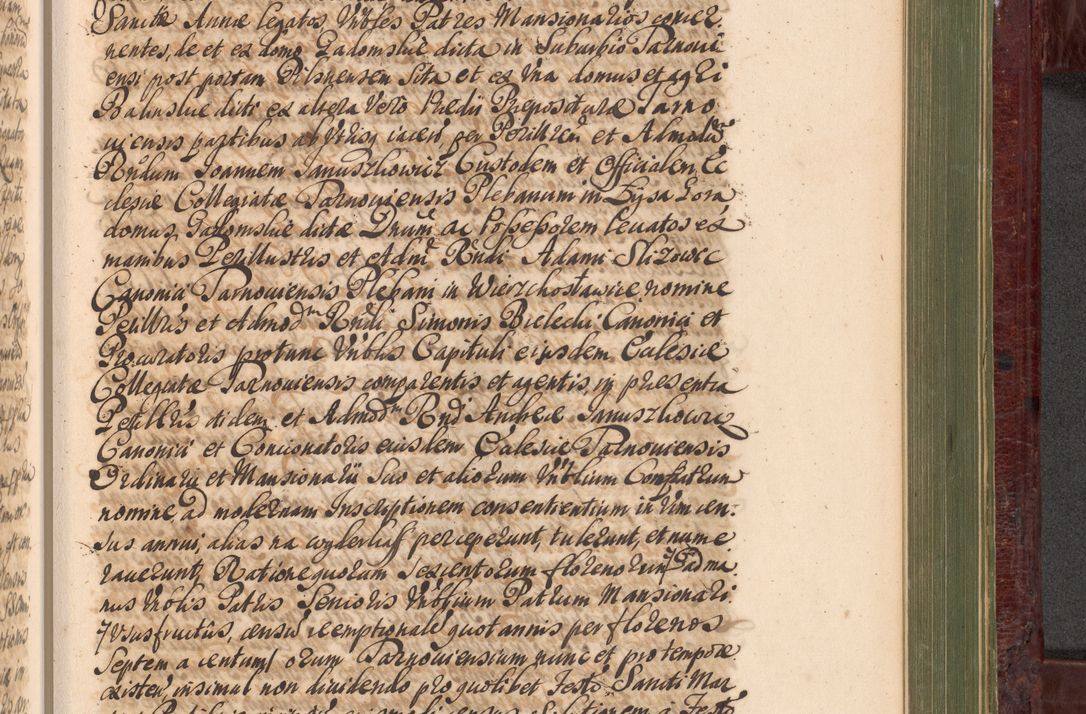 Sanctæ Annæ legatos Vnbles Patres Mansionarios concer
nentes, de et ex domo Gadomskie dicta in Suburbio Tarnovi
ensi post portam Pilsnensem Sita et ex Vna domus et agri
Balinskie dicti ex altera Vero Prædii Præpositure Tarno
viensis partibus ab Vtrisq iacen, per Perillrem et Admodum
Rndum Joannem Januszkowicz Custodem et Officialem Ec
clesiæ Collegiatæ Tarnoviensis Plebanum in Łysa Gora
domus Gadomskie dictæ Dnum ac Possessorem leuatos ex
manibus Perillustris et Adm Rndi Adami Slizowic
Canonici Tarnouiensis Plebani in Wierzchosławice nomine
Perillris et Admodm Rndi Simonis Bielecki Canonici et
Procuratoris protunc Vnblis Capituli eiusdem Ecclesiæ
Collegiatæ Tarnouiensis comparentis et agentis, in præsentia
Perillris itidem et Admodm Rndi Andreæ Januszkowic
Canonici et Concionatoris eiusdem Ecclesiæ Tarnouiensis
Ordinarii et Mansionarii Suo et aliorum Vnblium Confratrum
nomine, ad modernam Inscriptionem consentientium in Vim cen-
sus annui, alias na wyderkaff perceperunt, tulerunt, et nume
rauerunt, Ratione quorum Sexcentorum florenorum ad ma
nus Vnblis Patris Senioris Vnblium Patrum Mansionari
Vsusfructus, censu reemptionale quot annis per florenos
Septem a centum orum Tarnouiensium nunc et pro tempore
existen, insimul non diuidendo pro quolibet Festo Sancti Mar